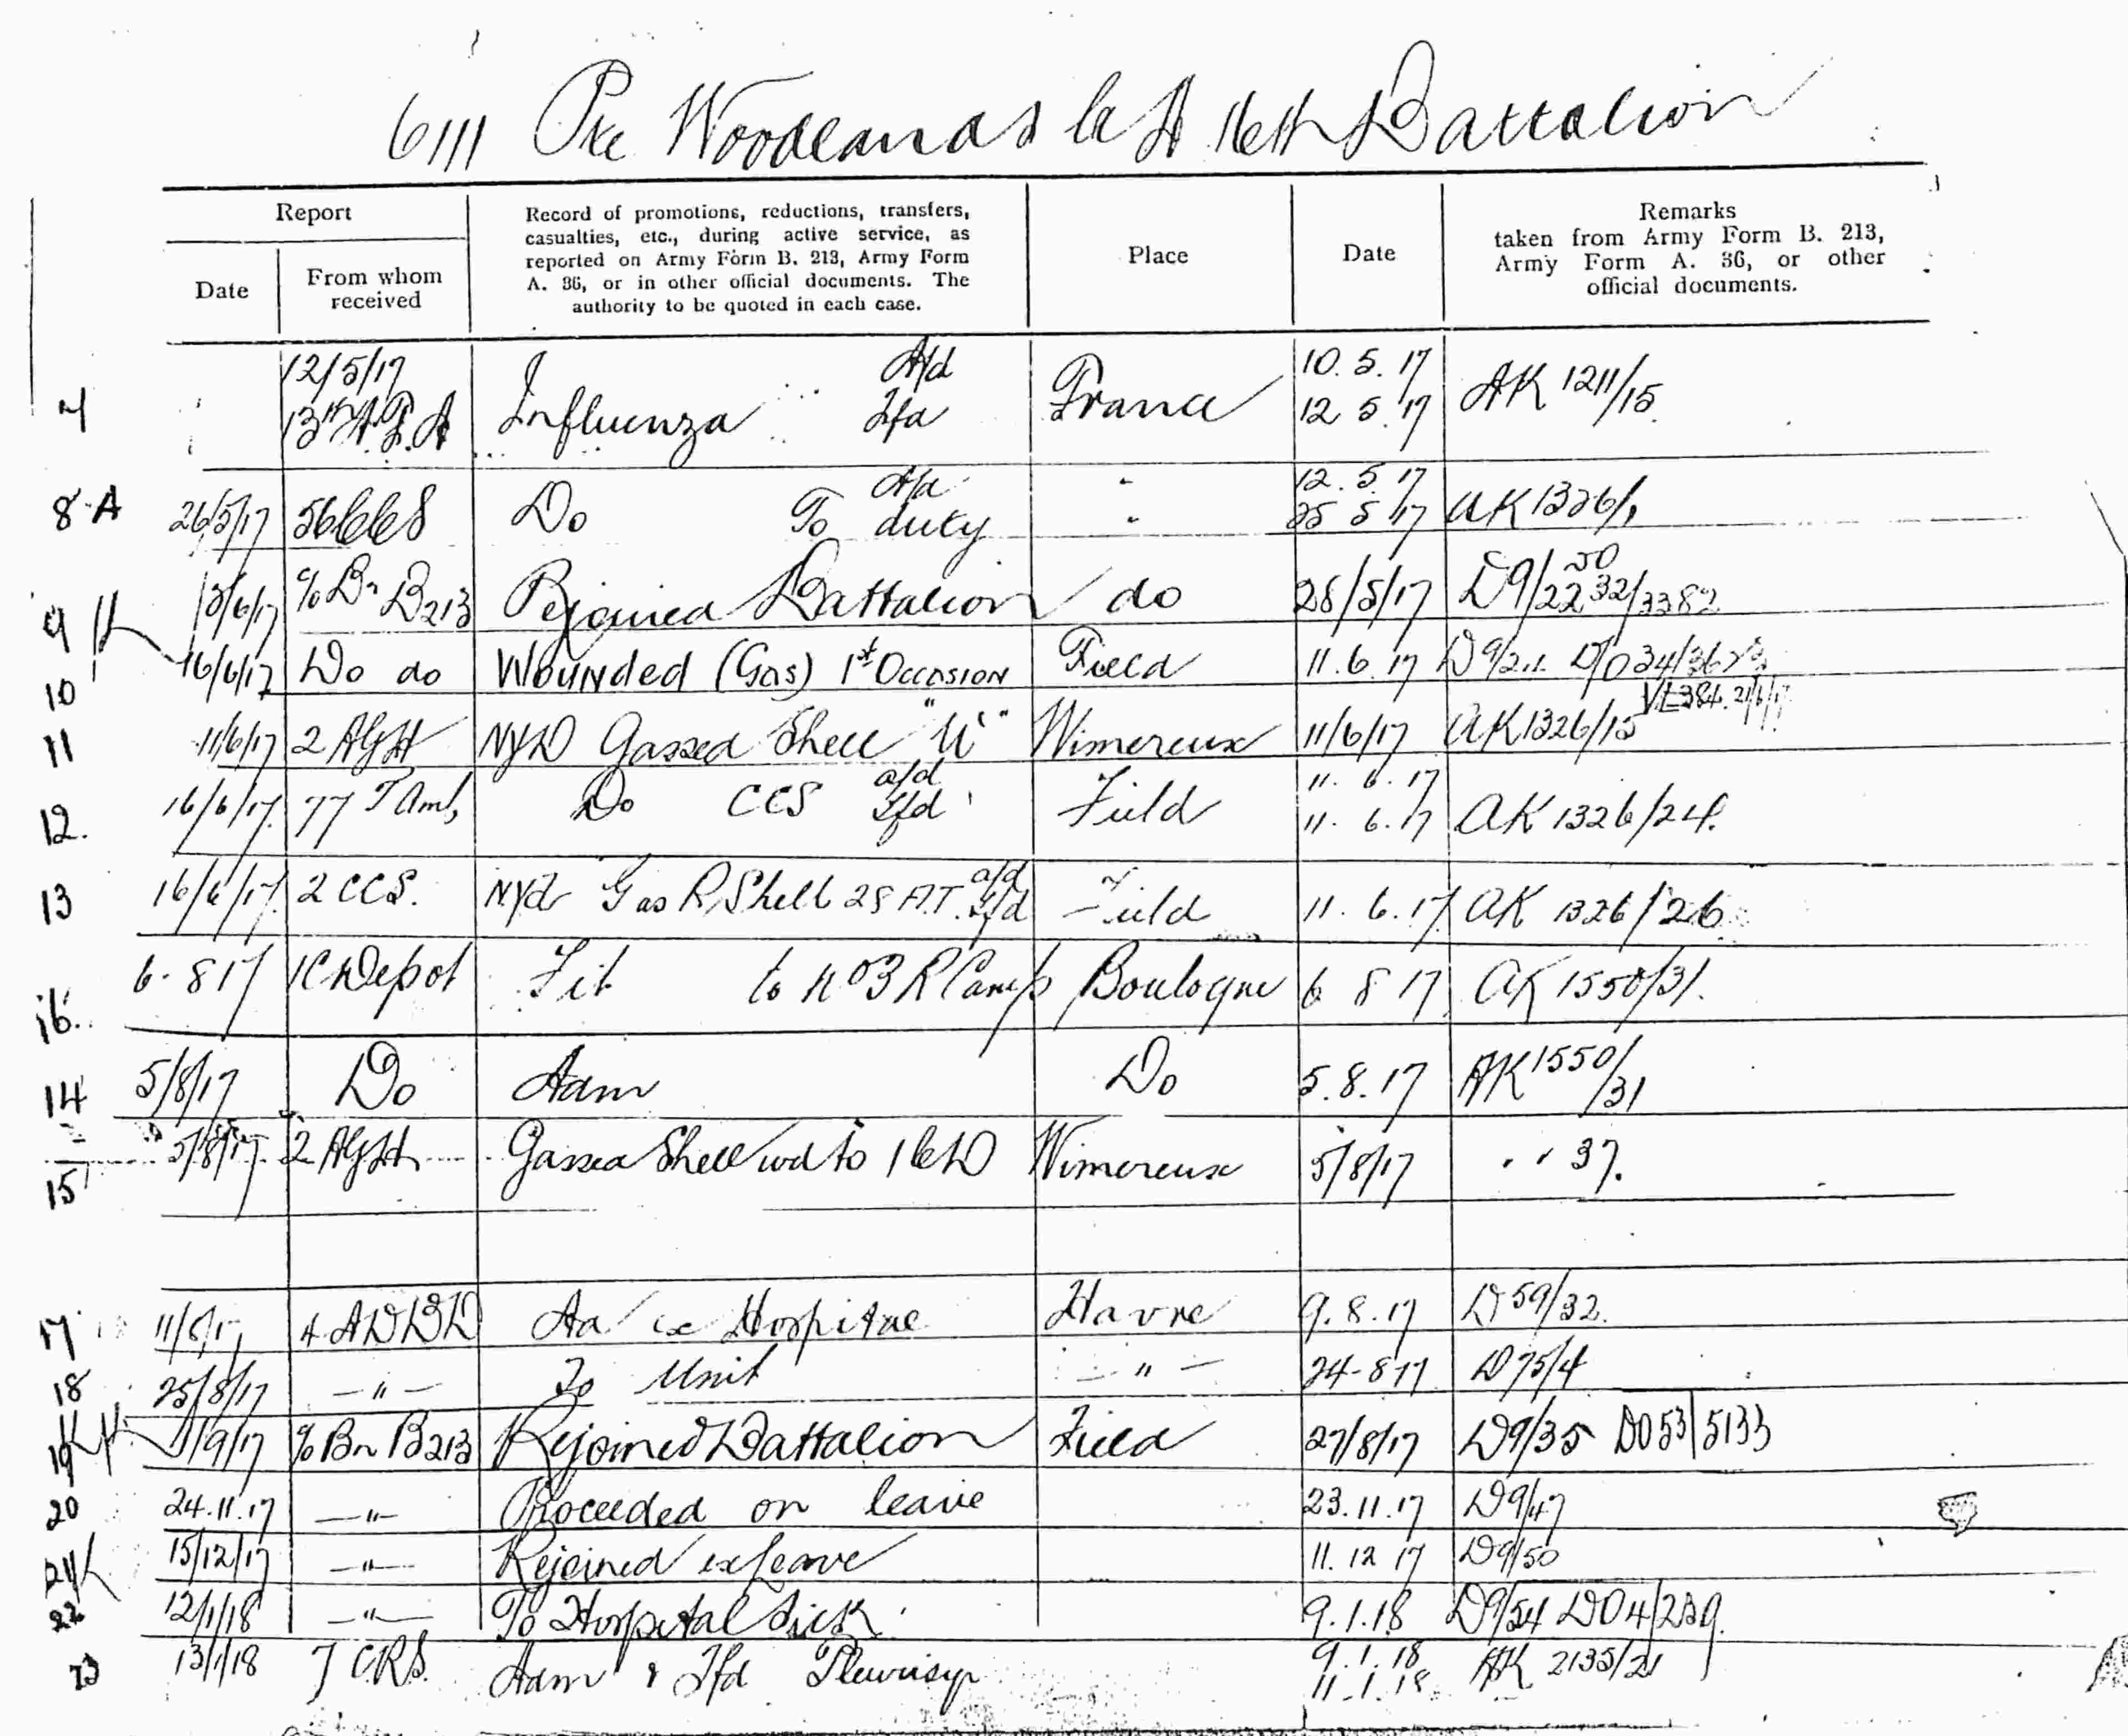 6111 Pte Woodlands C A 16th Battalion
Report
Date
From whom received
Record of promotions, reductions, transfers, casualties, etc., during active service, as reported on Army Form B. 213, Army Form A. 36, or in other official documents. The authority to be quoted in each case.
Place
Date
Remarks taken from Army Form B. 213, Army Form A. 36, or other official documents.
12/5/17 A/d 10. 5. 17
13th A.F.A Influenza Tfd France 12 5. 17 AK 1211/15
A/d " 12. 5. 17
8 A 26/5/17 56 CCS Do To duty " 25 5 17 AK 1326/1
9 K /6/17 c/o Bn B213 Rejoined Battalion do 28/5/17 D9/22 32/3382
10 16/6/17 Do do Wounded (Gas) 1st Occasion Field 11. 6. 17
11 11/6/17 2 AGH NYD Gassed Shell "W" Wimereux 11/6/17 AK 1326/15
a/d 11. 6. 17
12. 16/6/17. 77 F Amb Do CCS Tfd Field 11. 6. 17 AK 1326/24.
13 16/6/17. 2 CCS. NYD Gas Shell 28 A.T. a/d Tfd Field 11. 6. 17 AK 1326/26
16. 6-8 17 1 C Depot Fit to No 3 R Camp Boulogne 6 8 17 AK 1550/31.
14 5/8/17 Do Adm Do 5.8.17 AK 1550/31
15 5/8/17 2 AGH Gassed Shell wd to 1 CD Wimereux 5/8/17 " " 37.
17 4 ADBD ex Hospital Havre 9.8.17 D59/32.
18 25/8/17 — " — To Unit — " — 24-8 17 D75/4
19 1/9/17 c/o Bn B213 Rejoined Battalion Field 27/8/17 D9/35 DO53/5133
20 24.11.17 — " — Proceeded on leave 23.11.17 D9/47
21 K 15/12/17 — " — Rejoined ex leave 11. 12 17 D9/50
22 12/1/18 — " — To Hospital Sick. 9.1.18 D9/54 DO4/239.
9.1.18
23 13/1/18 CRS. Adm & Tfd Pleurisy 11.1.18. AK 2135/21